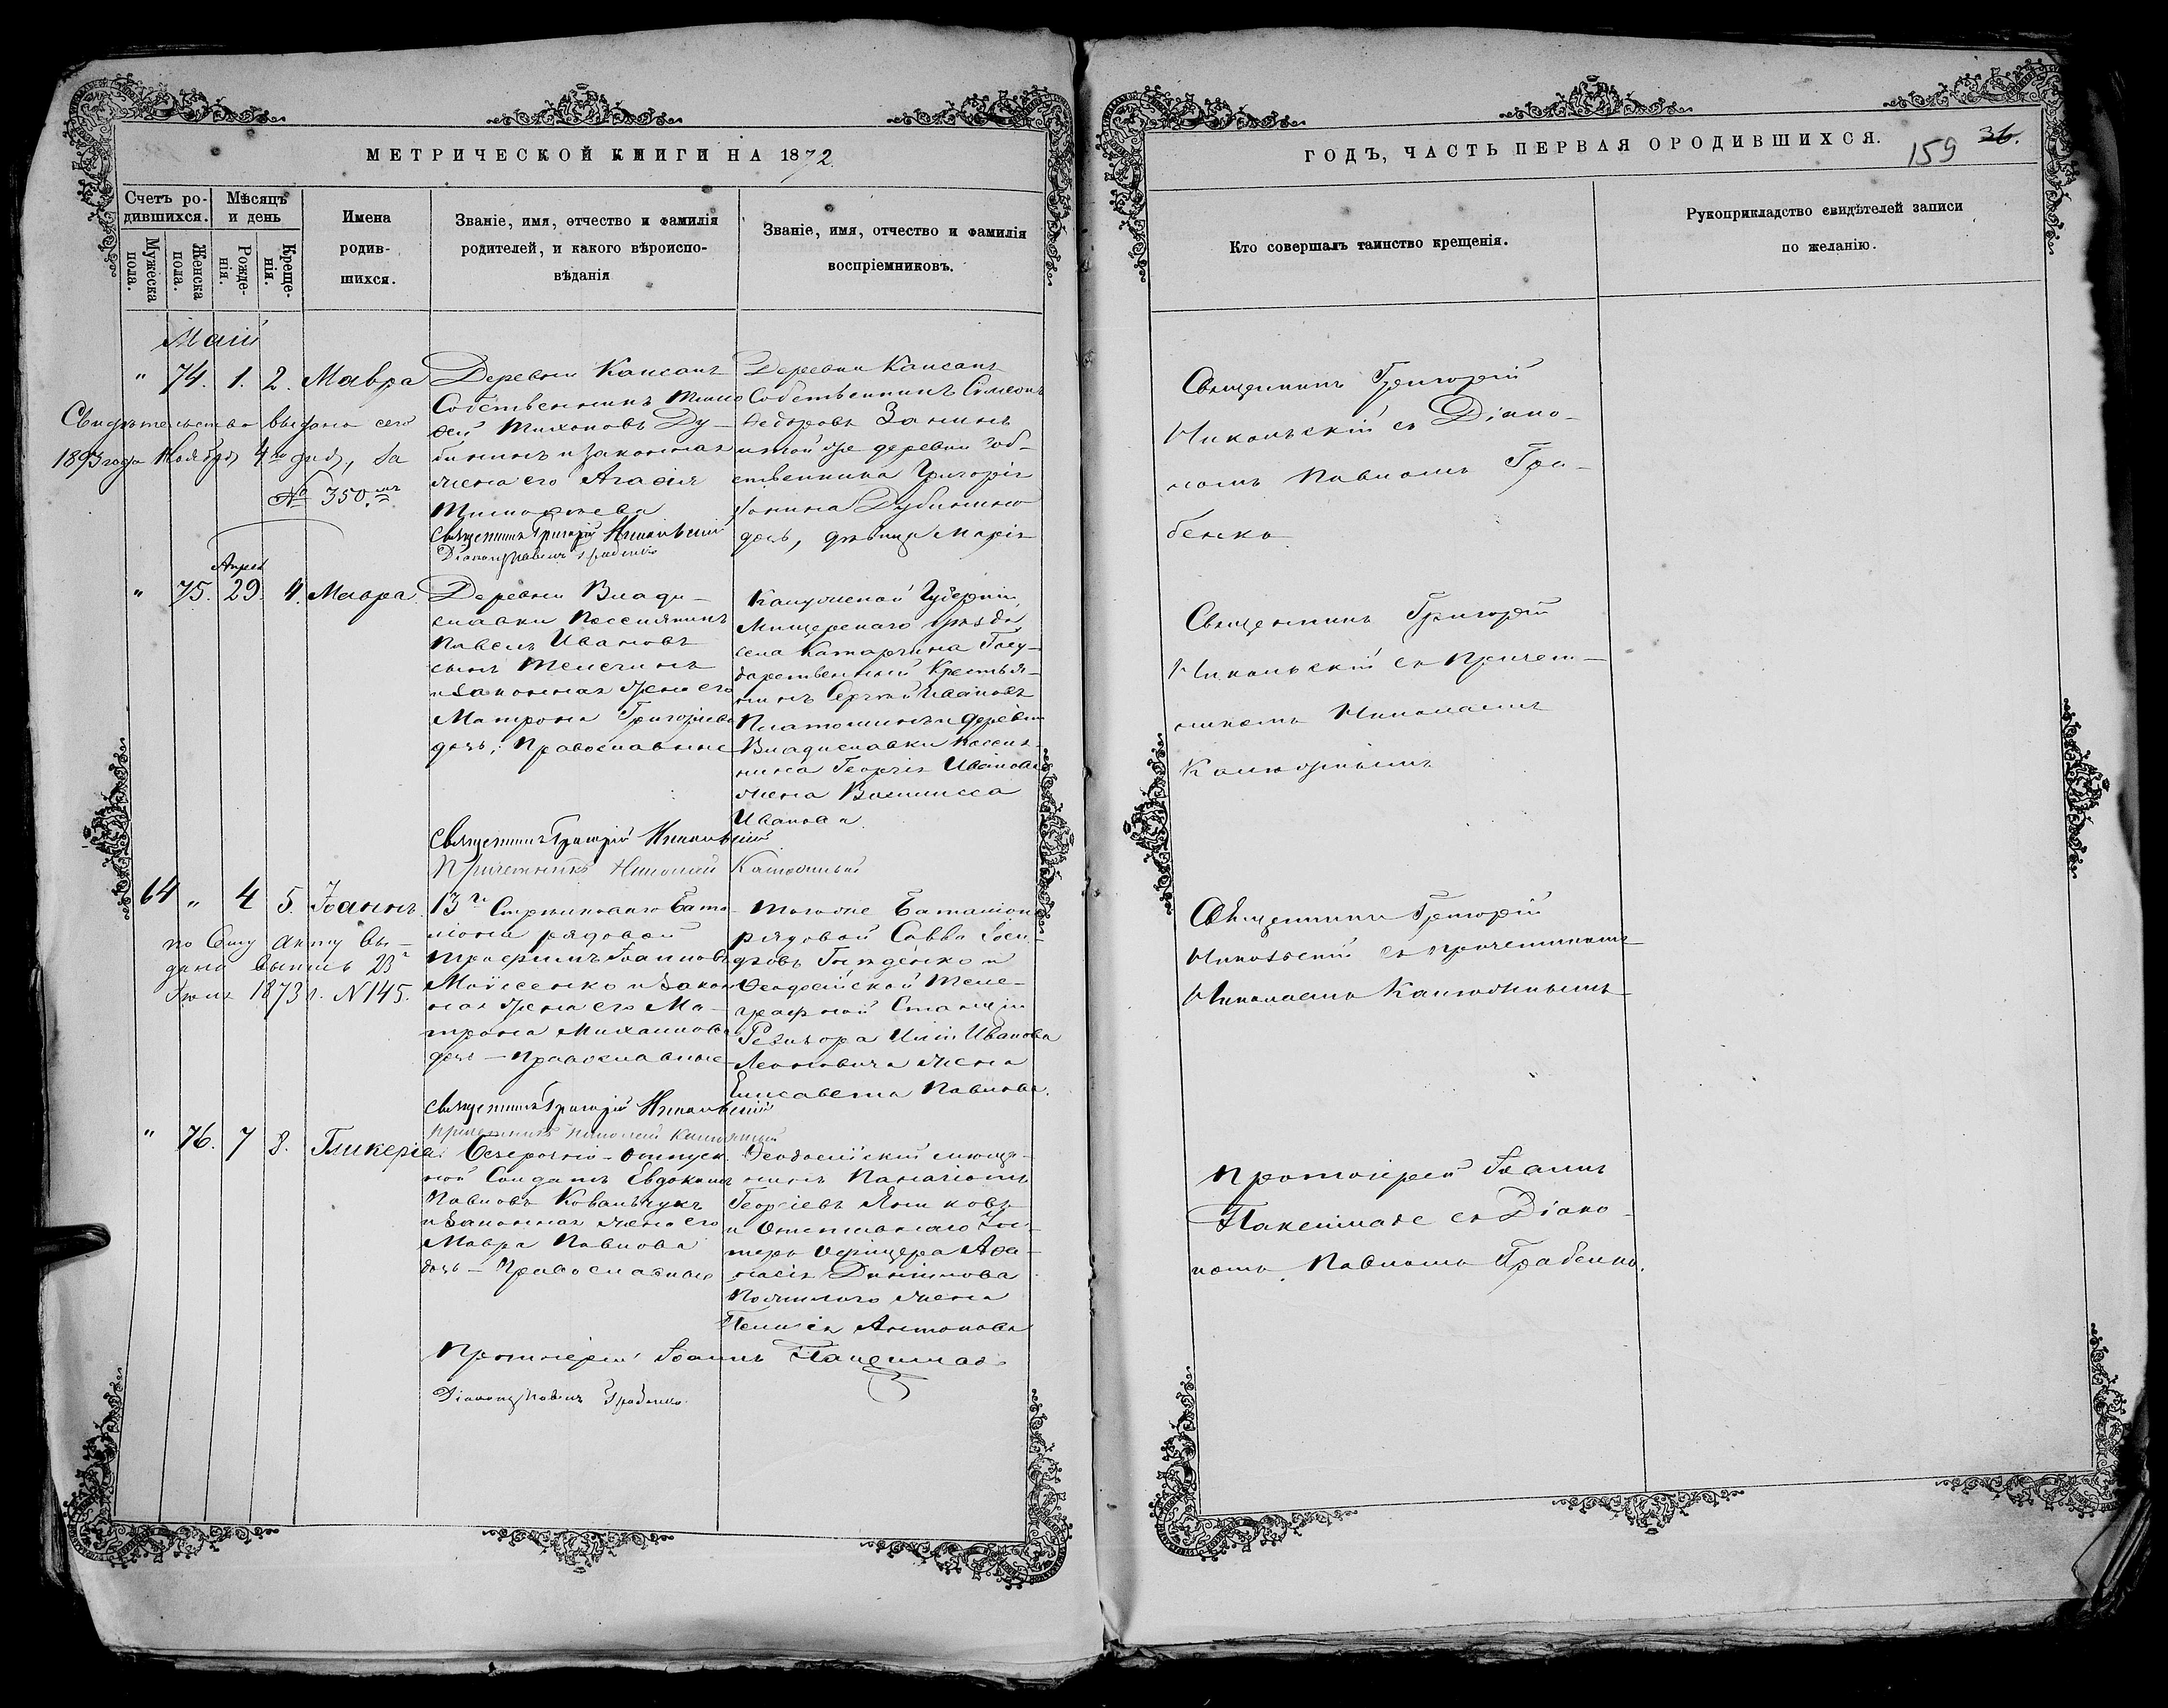 МЕТРИЧЕСКОЙ КНИГИ НА 1872.
Счетъ ро-
дившихся.
Мѣсяцъ
и день
Мужеска
пола.
Женска
пола.
Рожде-
нія.
Креще-
нія.
Имена
родив-
шихся.
Званіе, имя, отчество и фамилія
родителей, и какого вѣроиспо-
вѣданія
Званіе, имя, отчество и фамилія
воспріемниковъ.
Маій
" 74. 1. 2. Мавра
Деревни
Собственникъ Тимо
фей Тихоновъ Ду-
бининъ и законная
жена его Агафія
Тимофеева
Священникъ Григорій Никольскій
Діаконъ Павелъ Грабенко
Деревни
Собственникъ Симеонъ
Федоровъ Занинъ
и той же деревни соб-
ственника Григорія
Дубинина
дочь, дѣвица Марія
Свидѣтельство выдано сего
1893 года Ноября 4го дня, за
№ 350.мъ
Апрѣл
" 75. 29. 4. Мавра.
Деревни Влади-
славки Поселянинъ
Павелъ Ивановъ
сынъ Телегинъ
и законная жена его
Матрона Григорьева
дочь; Православные
Священникъ Григорій Никольскій
Причетникъ Николай Калюжный
Калужской Губерніи
уѣзда
села Государственный Крестья-
нинъ Сергѣй Ивановъ
Платошинъ и деревни
Владиславки поселя-
нина Георгія Иванова
жена Василисса
Иванова.
64 " 4 5. Іоаннъ.
13го Стрѣлковаго Бата-
ліона рядовой
Трофимъ Іоанновъ
Моисеенко и закон
ная жена его Ма-
трона Михаилова
дочь – Православные
Священникъ Григорій Никольскій
Причетникъ Николай Калюжный
Тогоже Баталіона
рядовой Савва Іоси-
фовъ и
Феодосійской Теле-
графной Станціи
Ревизора Иліи Иванова
Леоновича жена
Елисавета Павлова.
по сему акту вы-
дана выпись 23го
1873 г. N 145.
" 76. 7 8. Гликерія.
Безсрочно-отпуск
ной Солдатъ Евдокимъ
Павловъ Ковальчукъ
и законная жена его
Мавра Павлова
дочь – Православные
Протоіерей Іоаннъ Пакеимаде
Діаконъ Павелъ Грабенко.
Феодосійскій мѣща-
нинъ Панагіотъ
Георгіевъ Яниковъ
и Отставнаго Ун-
теръ Офицера Афа-
насія
жена
Пелагія Антонова
ГОДЪ, ЧАСТЬ ПЕРВАЯ О РОДИВШИХСЯ.
159 36.
Кто совершалъ таинство крещенія.
Рукоприкладство свидѣтелей записи
по желанію.
Священникъ Григорій
Никольскій съ Діако-
номъ Павломъ Гра-
бенко
Священникъ Григорій
Никольскій съ Причет-
никомъ Николаемъ
Калюжнымъ
Священникъ Григорій
Никольскій съ причетникомъ
Николаемъ Калюжнымъ
Протоіерей Іоаннъ
Пакеимаде съ Діако-
номъ Павломъ Грабенко.